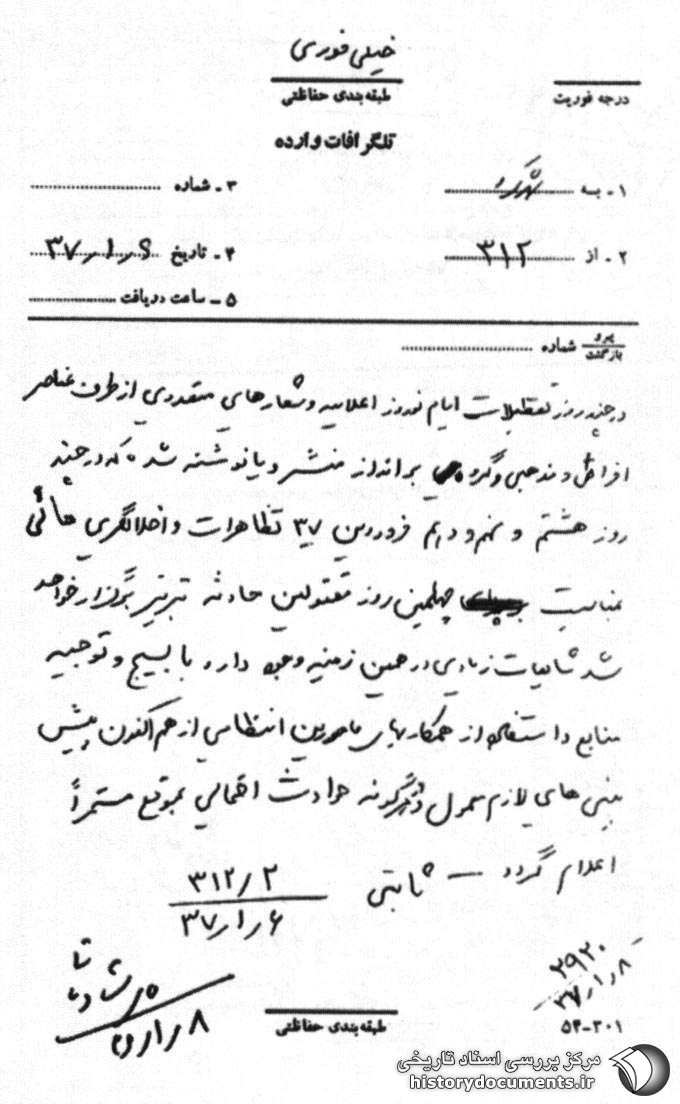 خیلی فوری
طبقه‌بندی حفاظتی
درجه فوریت
تلگرافات وارده
۱ - به
۳ - شماره
۲ - از ۳۱۲
۴ - تاریخ ۳۷٫۱٫۶
۵ - ساعت دریافت
پیرو
بازگشت
شماره
در چند روز تعطیلات ایام نوروز اعلامیه و شعارهای متعددی از طرف عناصر
افراطی و مذهبی و گروه‌های برانداز منتشر و یا نوشته شد که در چند
روز هشتم و نهم و دهم فروردین ۳۷ تظاهرات و اخلالگری هائی
بمناسبت چهلمین روز مقتولین حادثه تبریز برگزار خواهد
شد شایعات زیادی در همین زمینه وجود دارد با بسیج و توجیه
منابع و استفاده از همکاریهای مامورین انتظامی از هم اکنون پیش
بینی های لازم معمول و هرگونه حوادث احتمالی بموقع مستمراً
اعلام گردد — ثابتی
۳۱۲/۲
۳۷٫۱٫۶
۲۹۲۰
۳۷٫۱٫۸
طبقه‌بندی حفاظتی
۵۴-۳۰۱
مرکز بررسی اسناد تاریخی
historydocuments.ir